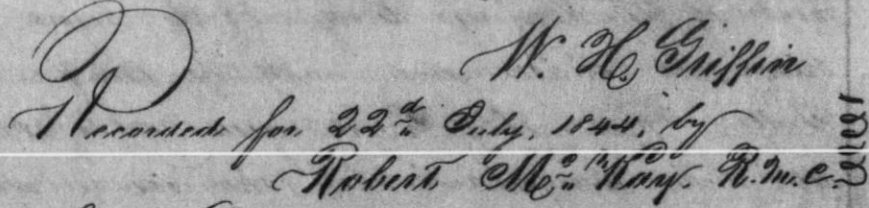 W. H. Griffin
Recorded for 22d July, 1844, by
Robert McKay. R. M. C.